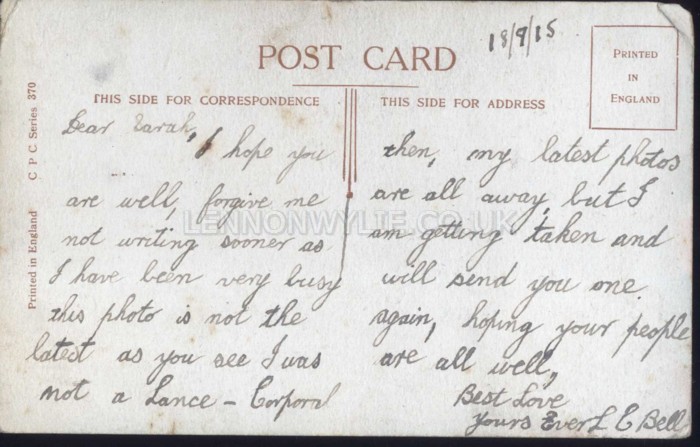 18/9/15
POST CARD
PRINTED
IN
ENGLAND
THIS SIDE FOR CORRESPONDENCE
THIS SIDE FOR ADDRESS
Printed in England C P C Series 370
Dear Sarah,
I hope you
are well, forgive me
not writing sooner as
I have been very busy
this photo is not the
latest as you see I was
not a Lance - Corporal
then, my latest photos
are all away, but I
am getting taken and
will send you one
again, hoping your people
are all well,
Best Love
Yours Ever L E Bell
LENNONWYLIE.CO.UK